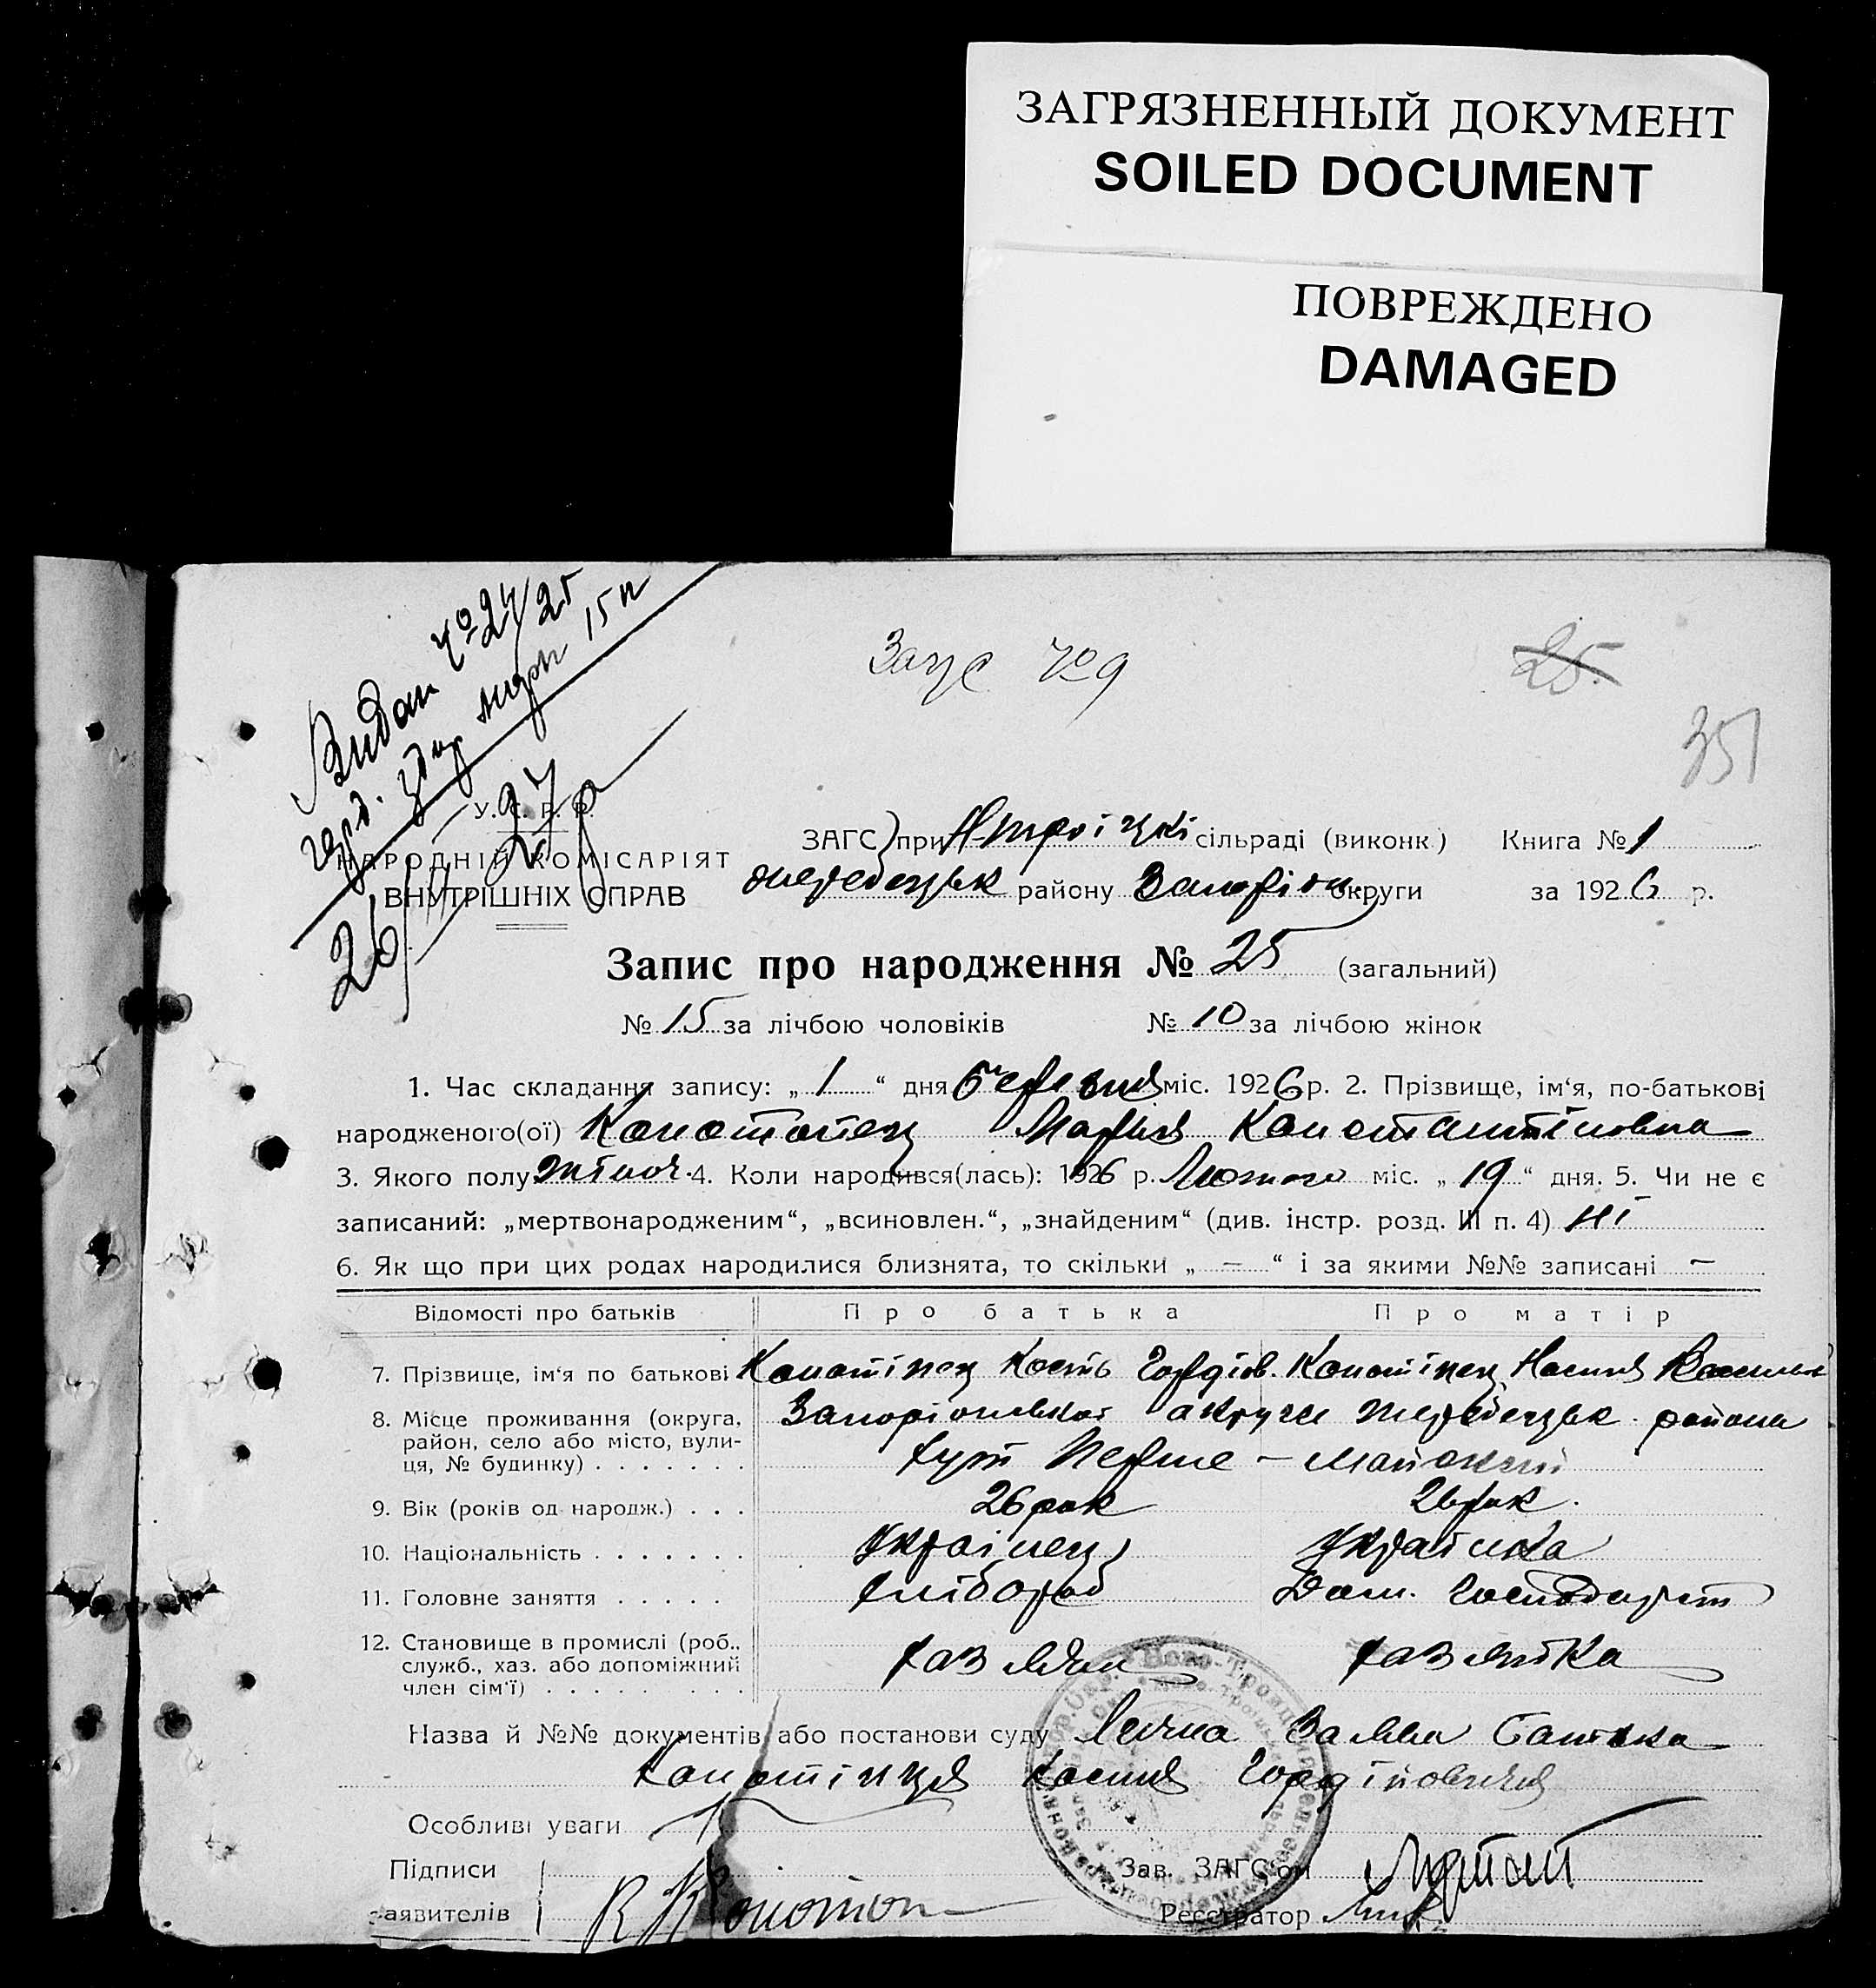 ЗАГРЯЗНЕННЫЙ ДОКУМЕНТ
SOILED DOCUMENT
ПОВРЕЖДЕНО
DAMAGED
Видан № 24/25
15
25.
№ 9
351
У.С.Р.Р.
НАРОДНІЙ КОМІСАРІЯТ
ВНУТРІШНІХ СПРАВ
ЗАГС при Н-Троіцкі сільраді (виконк.) Книга № 1
жеребецьк району Запоріж. округи за 1926 р.
Запис про народження № 25 (загальний)
№ 15 за лічбою чоловіків № 10 за лічбою жінок
1. Час складання запису: „ 1 “ дня березня міс. 1926 р. 2. Прізвище, ім‘я, по-батькові
народженого(ої) Конотопец Марыя Констатіновна
3. Якого полу жіноч. 4. Коли народився(лась): 1926 р. Лютого міс. „ 19 “ дня. 5. Чи не є
записаний: „мертвонародженим“, „всиновлен.“, „знайденим“ (див. інстр. розд. III п. 4) ні
6. Як що при цих родах народилися близнята, то скільки „ — “ і за якими №№ записані —
Відомості про батьків Про батька Про матір
7. Прізвище, ім‘я по батькові Конотіпец Кость Гордіов. Конотіпец Настя
8. Місце проживання (округа, район, село або місто, вулиця, № будинку) . . . . . . . Запоріжської округи жеребецьк. района
хут Перше — Майський
9. Вік (років од народж.) . . . 26 рок 26 рок.
10. Національність . . . . . . . Украінец Украінка
11. Головне заняття . . . . . Хлібороб Дом. Господарст
12. Становище в промислі (роб., служб., хаз. або допоміжний член сім‘ї) . . . . . . . . . хазяйка
Назва й №№ документів або постанови суду Лична Заява Батька
Конотіпця Костя Гордійовичя
Особливі уваги
Підписи
заявителів К Конотоп
Зав. ЗАГС‘ом
Реєстратор